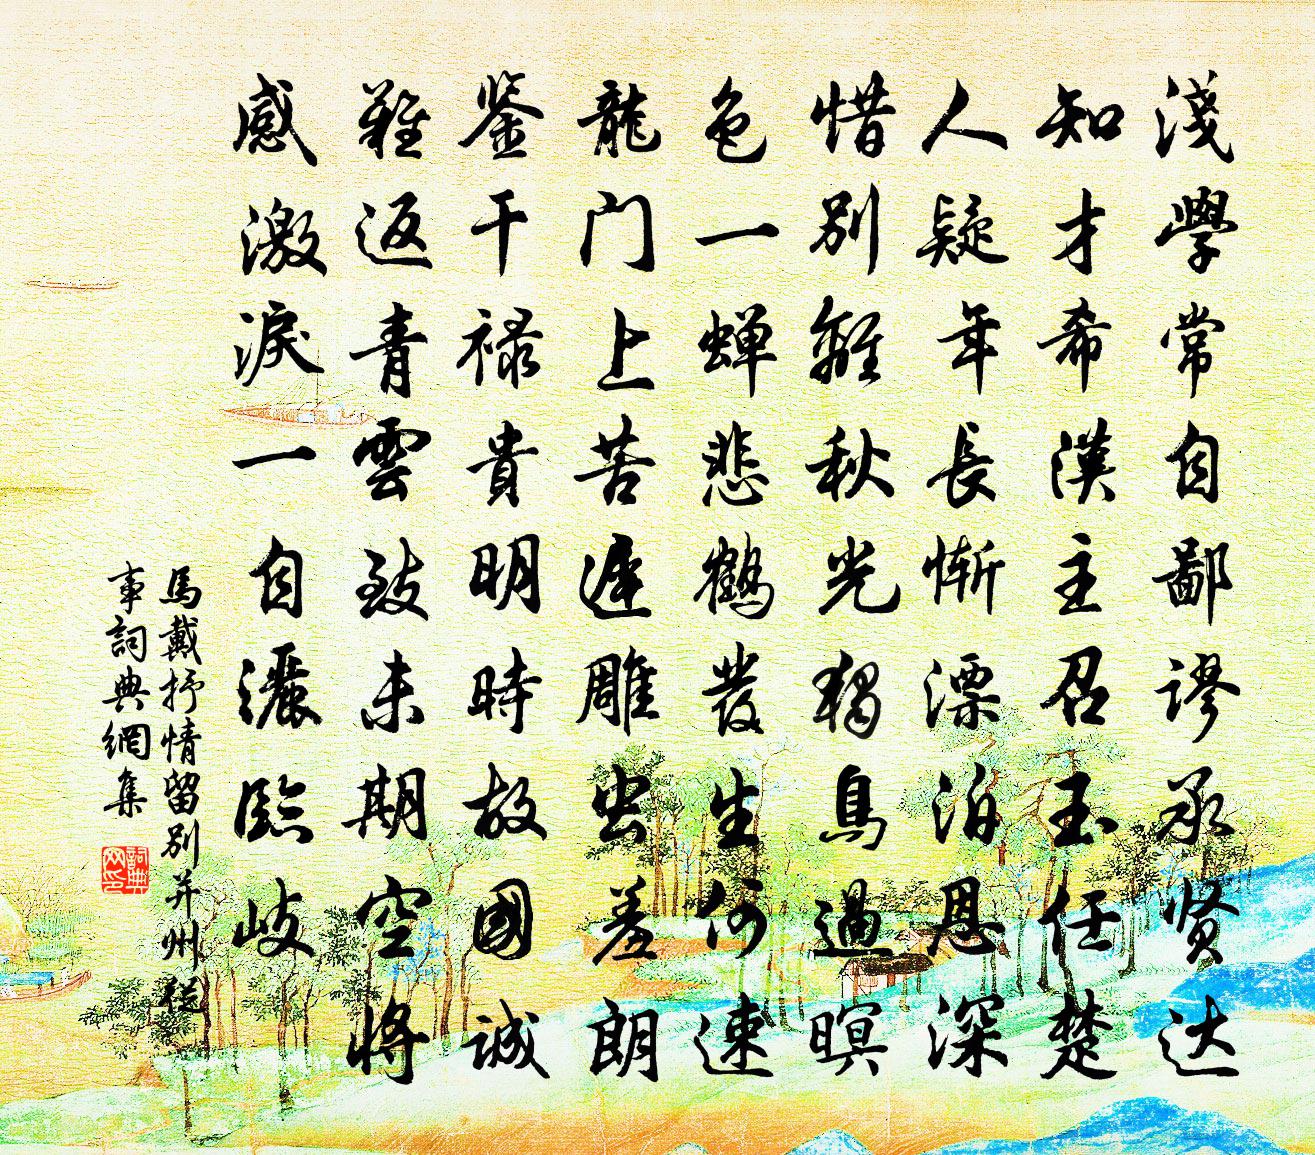 淺學常自鄙謬承贤达
知才希漢主召玉任楚
人疑年長慚漂泊恩深
惜别離秋光獨鳥過暝
色一蝉悲鶴發生何速
龍门上苦遲雕虫羞朗
鉴干禄貴明時故國誠
難返青雲致未期空將
感激淚一自灑臨岐
馬戴抒情留别并州從
事詞典網集
詞典
网印